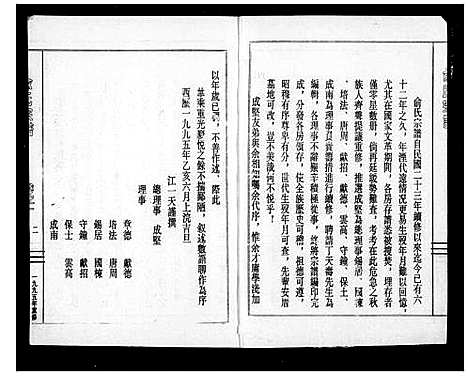 俞氏宗譜自民國二十三年續修以來迄今已有六
十二年之久，年湮代遠情況更易生歿年月難以回憶，
尤其在國家文革期間，各房存譜悉被搜焚，埋存者
僅零星數冊，倘再延緩勢難查，考在此危急之秋
族人齊聲提議重修，推選成堅為總理事錫居、國棟
、培法、唐周、獻招、獻德、雲高、守鐘、保士、
成南為理事負責籌措進行續修，聘請丁天壽先生為
編輯，各理事不辭艱辛積極從事，終將宗譜編印完
成，俞分發各房領存，使全族宗支一目了然，祖德可遵，
昭穆有序尊卑有分，世代生歿年月可查，先輩安厝
墓地可改，豈不美哉何不悅乎！
成堅友弟與余相知囑余代序，惟余才庸學淺加
以年歲已高，不善作述，際此
華乘重光發悅之餘不揣鄙陋，叙述數語聊作為序
江一天謹撰
西歷一九九五年乙亥六月上浣吉旦
總理事　成堅
理事
章德　獻德
培法　唐周
錫居　國棟
守鐘　獻招
保士　雲高
成南
二
一九九五年重修